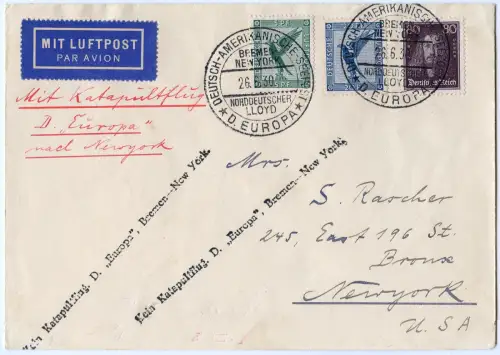 MIT LUFTPOST
PAR AVION
DEUTSCH-AMERIKANISCHE
BREMEN
NEW YORK
26.6.30
NORDDEUTSCHER
LLOYD
★ D. EUROPA ★
DEUTSCH-AMERIKANISCHE
BREMEN
NEW
26.6.30
NORDDEUTSCHER
LLOYD
★ D. EUROPA ★
80
80
Deutsches Reich
Mit Katapultflug
D. „Europa"
nach Newyork
Kein Katapultflug. D. „Europa", Bremen—New York.
Kein Katapultflug. D. „Europa", Bremen—New York.
Mrs.
S. Rascher
245, East 196 St.
Bronx
Newyork
U.S.A